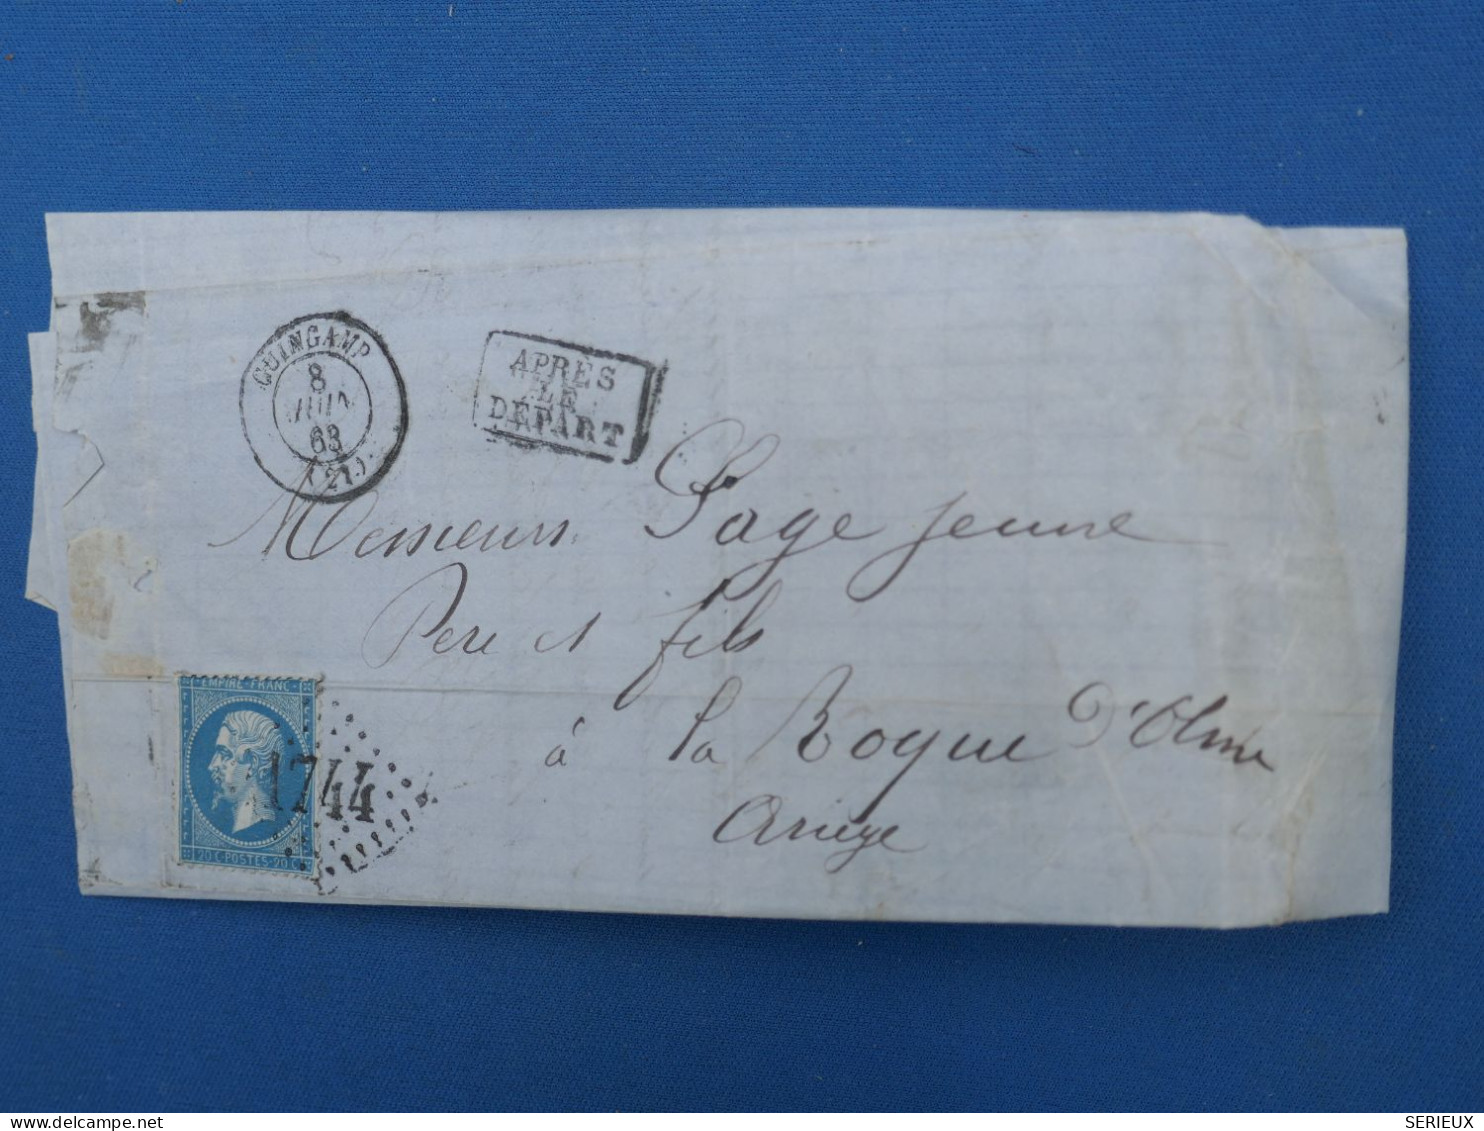 GUINGAMP
8
JUIN
63
(21)
APRÈS
LE
DÉPART
Messieurs Page jeune
Pere et fils
à la Roque D'Olme
Ariege
EMPIRE-FRANC-
1744
20C-POSTES-20C
SERIEUX